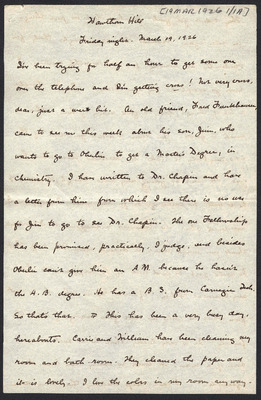 [19 MAR 1926 1/1A]
Hawthorn Hill
Friday night. March 19, 1926
I've been trying for half an hour to get some one
over the telephone and I'm getting cross! Not very cross,
dear, just a wee bit. An old friend, Fred Funkhouser
came to see me this week about his son, Jim, who
wants to go to Oberlin to get a Master's Degree, in
chemistry. I have written to Dr. Chapin and have
a letter from him from which I see there is no use
for Jim to go to see Dr. Chapin. The one Fellowship
has been promised, practically, I judge, and besides
Oberlin can't give him an A.M. because he hasn't
the A.B. degree. He has a B.S. from Carnegie Tech.
So that's that. This has been a very busy day,
hereabouts. Carrie and William has been cleaning my
room and bath room. They cleaned the paper and
it is lovely. I love the colors in my room anyway.